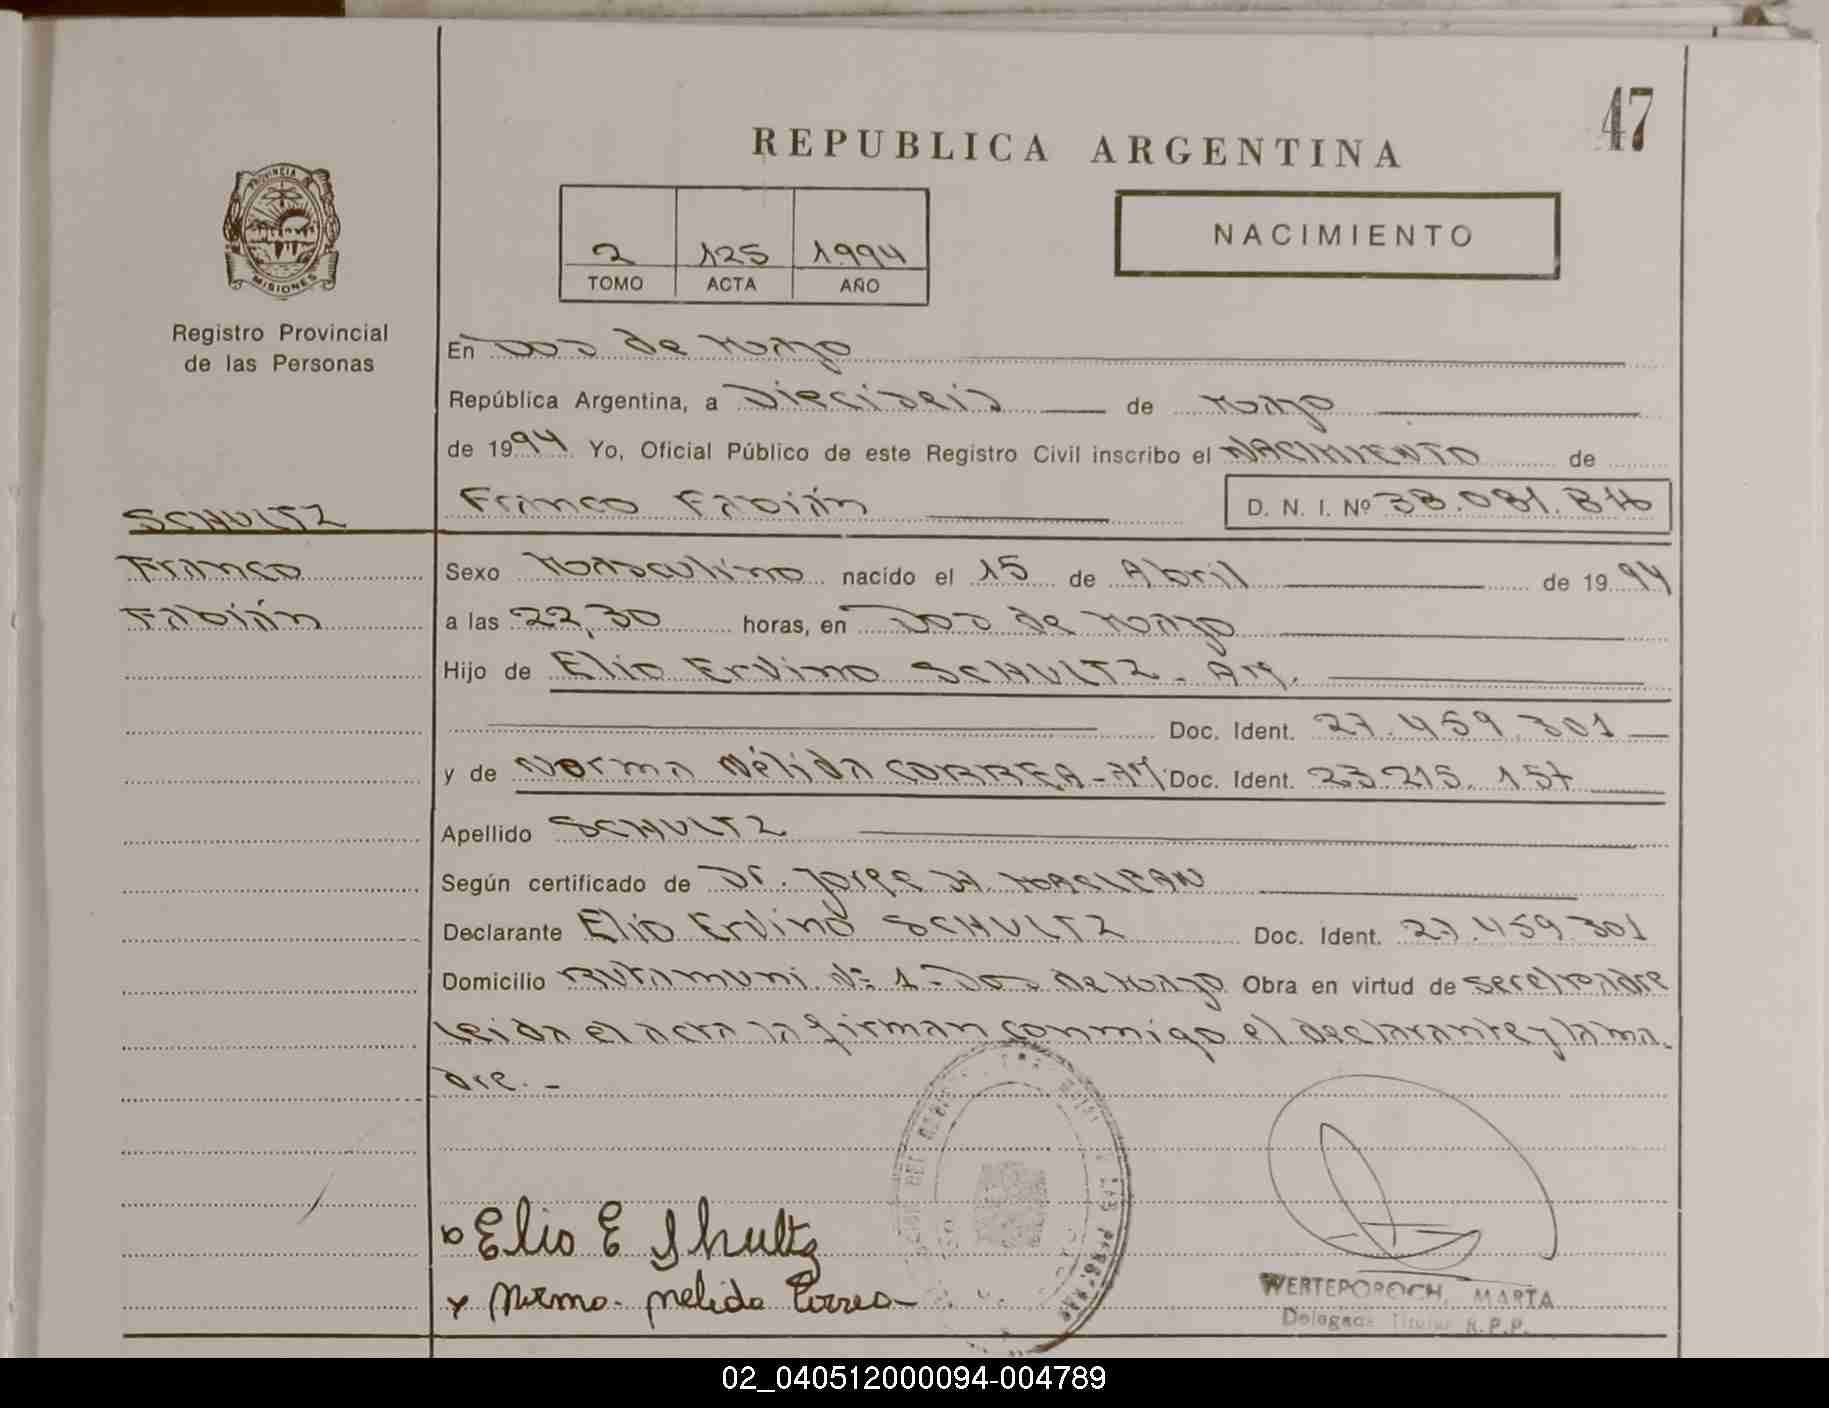 47
REPUBLICA ARGENTINA
NACIMIENTO
2 125 1994
TOMO ACTA AÑO
PROVINCIA
MISIONES
Registro Provincial
de las Personas
En Dos de Mayo
República Argentina, a Dieciseis de Mayo
de 1994 Yo, Oficial Público de este Registro Civil inscribo el NACIMIENTO de
SCHULTZ
Franco Fabián D. N. I. Nº 38.081.846
Franco
Sexo Masculino nacido el 15 de Abril de 1994
Fabián
a las 22,30 horas, en Dos de Mayo
Hijo de Elio Ervino SCHULTZ - AM.
Doc. Ident. 27.459.301
y de Norma Nélida CORREA - AM. Doc. Ident. 23.215.157
Apellido SCHULTZ
Según certificado de Dr. Jorge MACLEAN
Declarante Elio Ervino SCHULTZ Doc. Ident. 27.459.301
Domicilio Ruta muni. Nº 1 - Dos de Mayo Obra en virtud de ser el padre
Leida el acta la firman conmigo el declarante y la ma-
dre. -
Elio E Shultz
Norma nelida Correa
WERTEPOROCH, MARTA
Delegada Titular R.P.P.
02_040512000094-004789